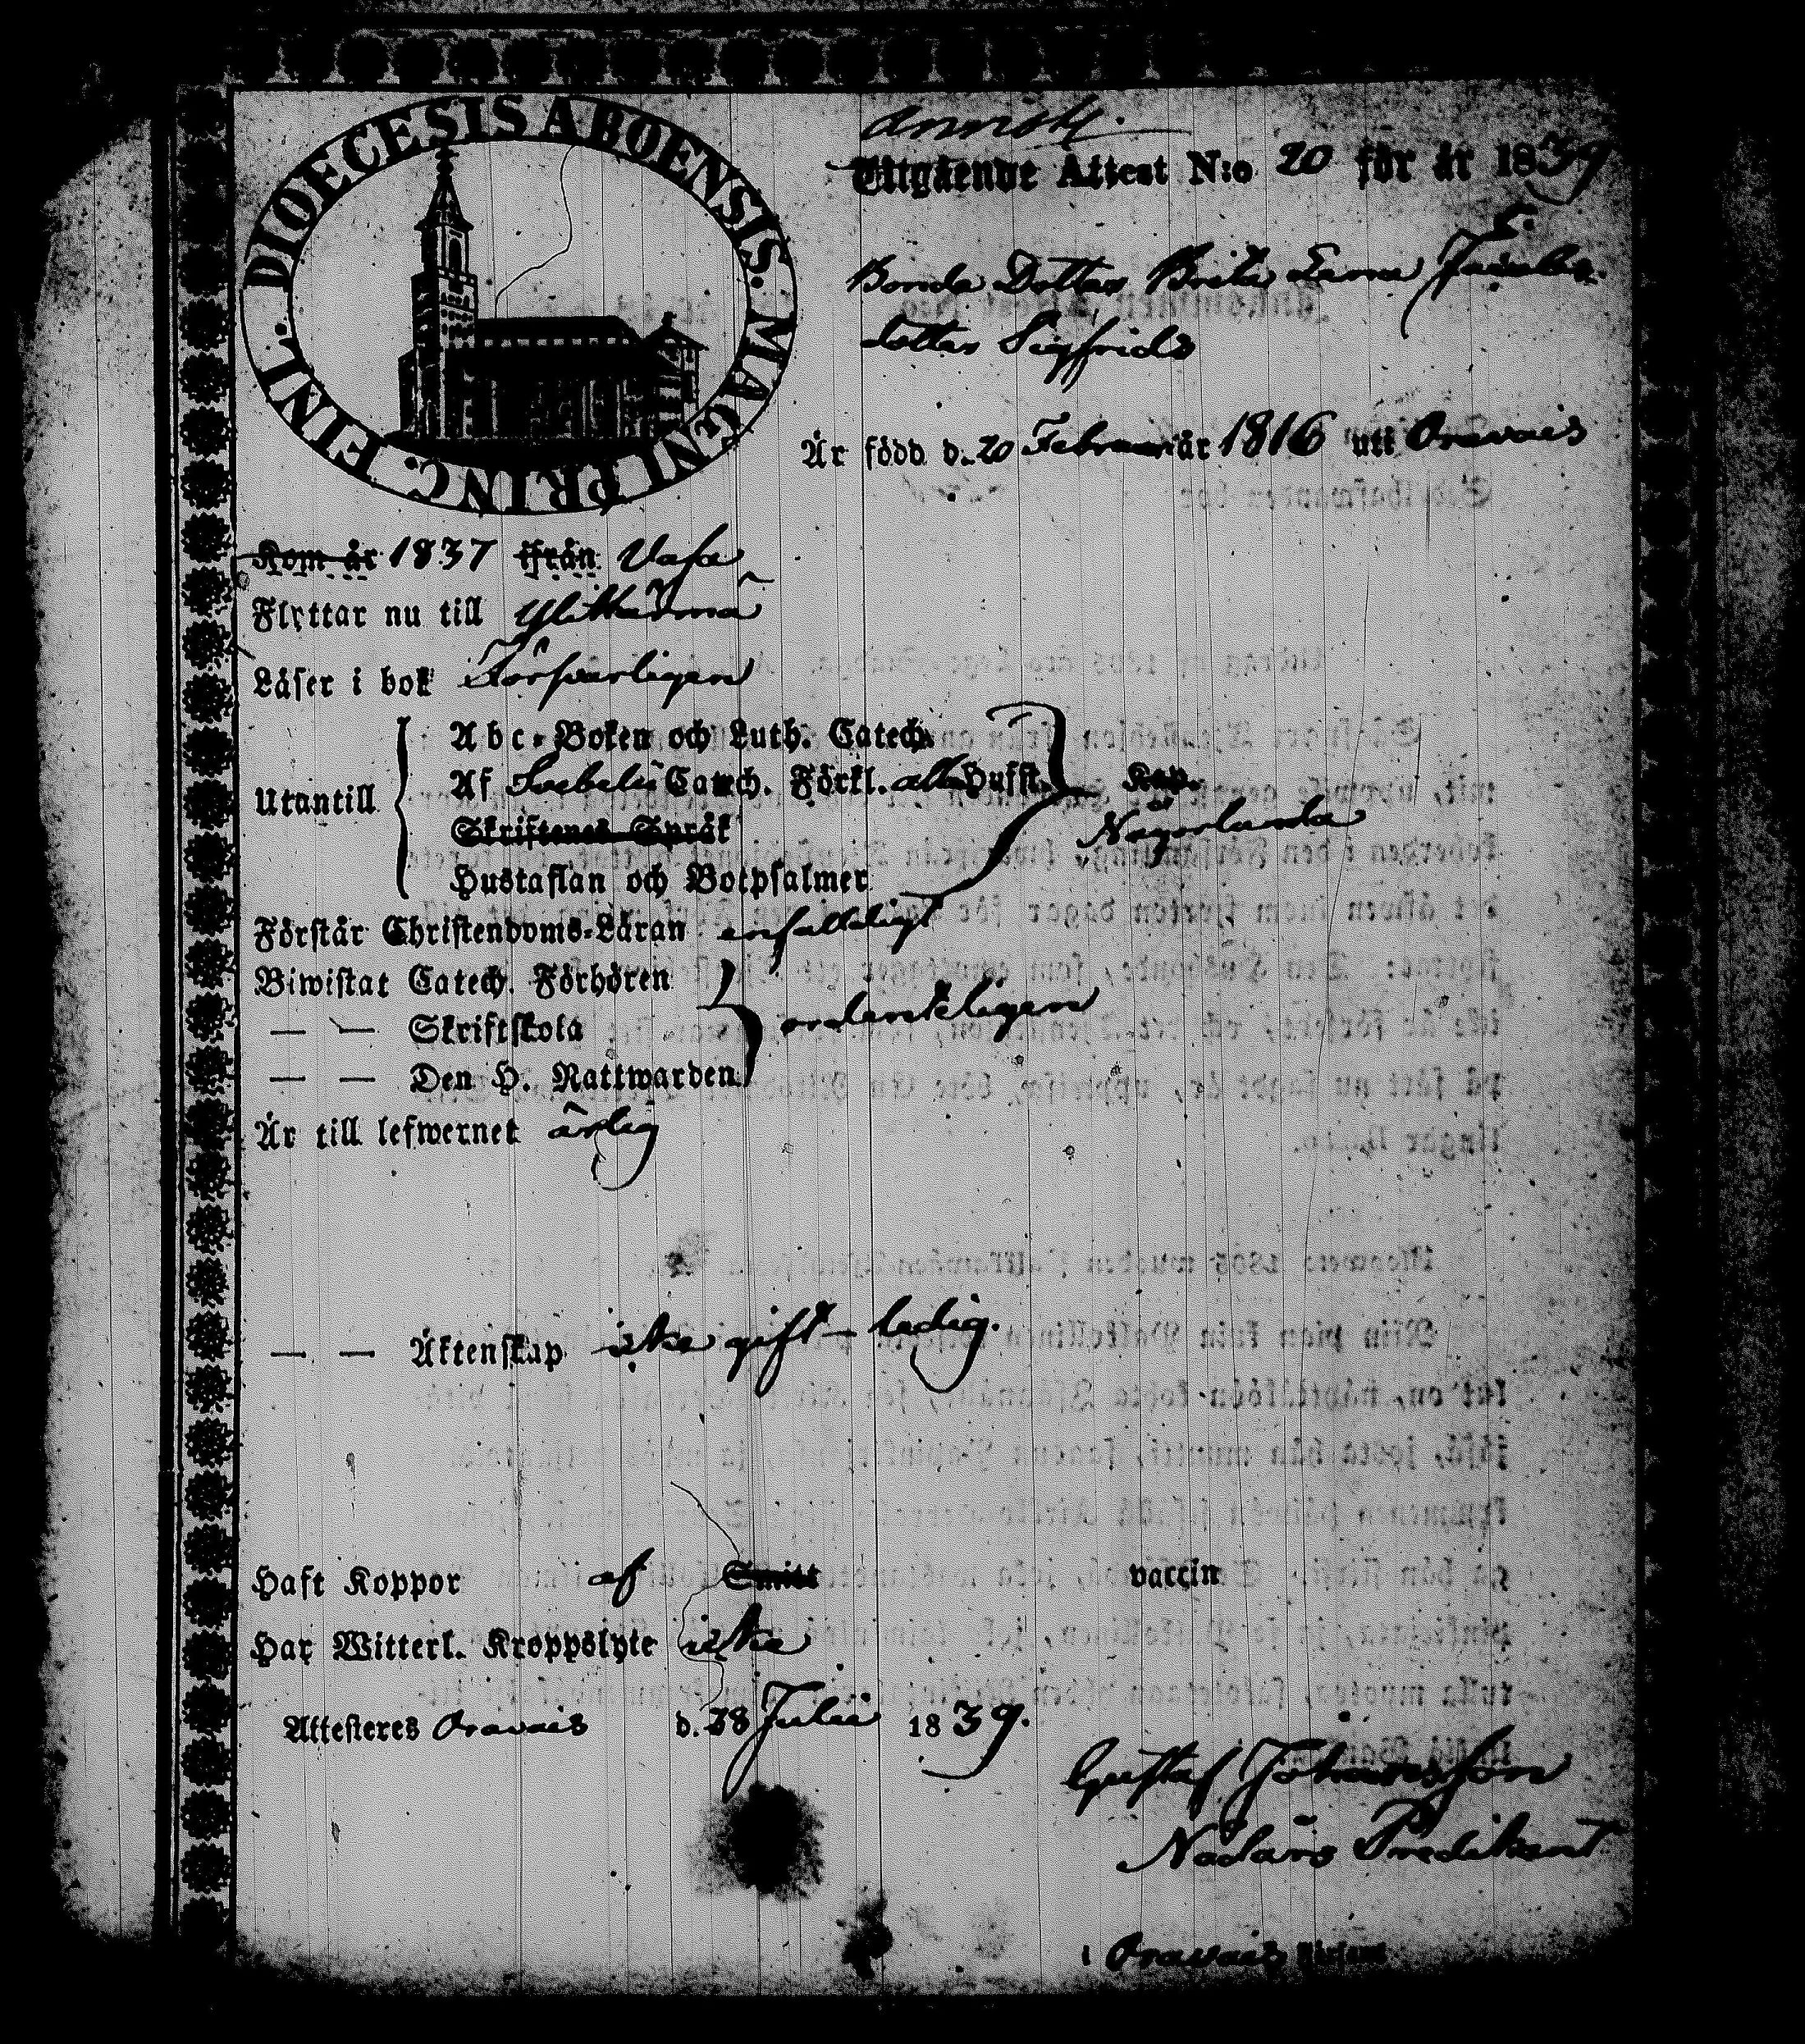 DIOECESIS ABOENSIS. MAGNI PRINC. FINL.
Utgående Attest N:o 20 för år 1839
Bonda Dotter Brita Lena Jacobs
dotter Sigfrids
Är född d. 20 Februari år 1816 uti Oravais
Kom år 1837 ifrån Vasa
Flyttar nu till Ylikärmä
Läser i bok Försvarligen
Utantill
Abc-Boken och Luth. Catech.
Af Svebelii Catech. Förkl. alla Hufst. Kap.
Skriftenes Språk
Någorlunda
Hustaflan och Botpsalmer
Förstår Christendoms-Läran enfaldeligt
Biwistat Catech. Förhören
— — Skriftskola ordenteligen
— — Den H. Nattwarden
Är till lefwernet ärlig
— — Äktenskap icke gift – ledig.
Haft Koppor af Smitt vaccin
Har Witterl. Kroppslyte icke
Attesteres Oravais d. 28 Julii 1839.
Gustaf Johansson
Nådårs Predikant
i Oravais